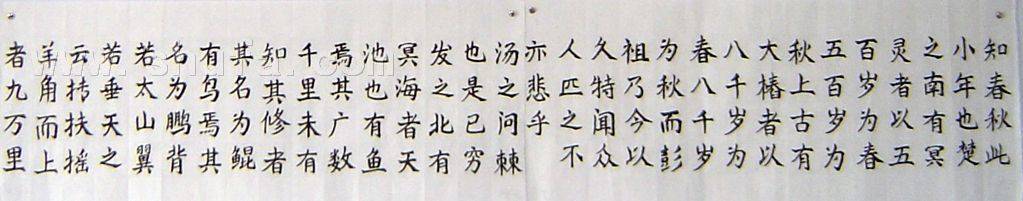 知春秋此
小年也楚
之南有冥
灵者以五
百岁为春
五百岁为
秋上古有
大椿者以
八千岁为
春八千岁
为秋而彭
祖乃今以
久特闻众
人匹之不
亦悲乎
汤之问棘
也是已穷
发之北有
冥海者天
池也有鱼
焉其广数
千里未有
知其修者
其名为鲲
有鸟焉其
名为鹏背
若太山翼
若垂天之
云抟扶摇
羊角而上
者九万里